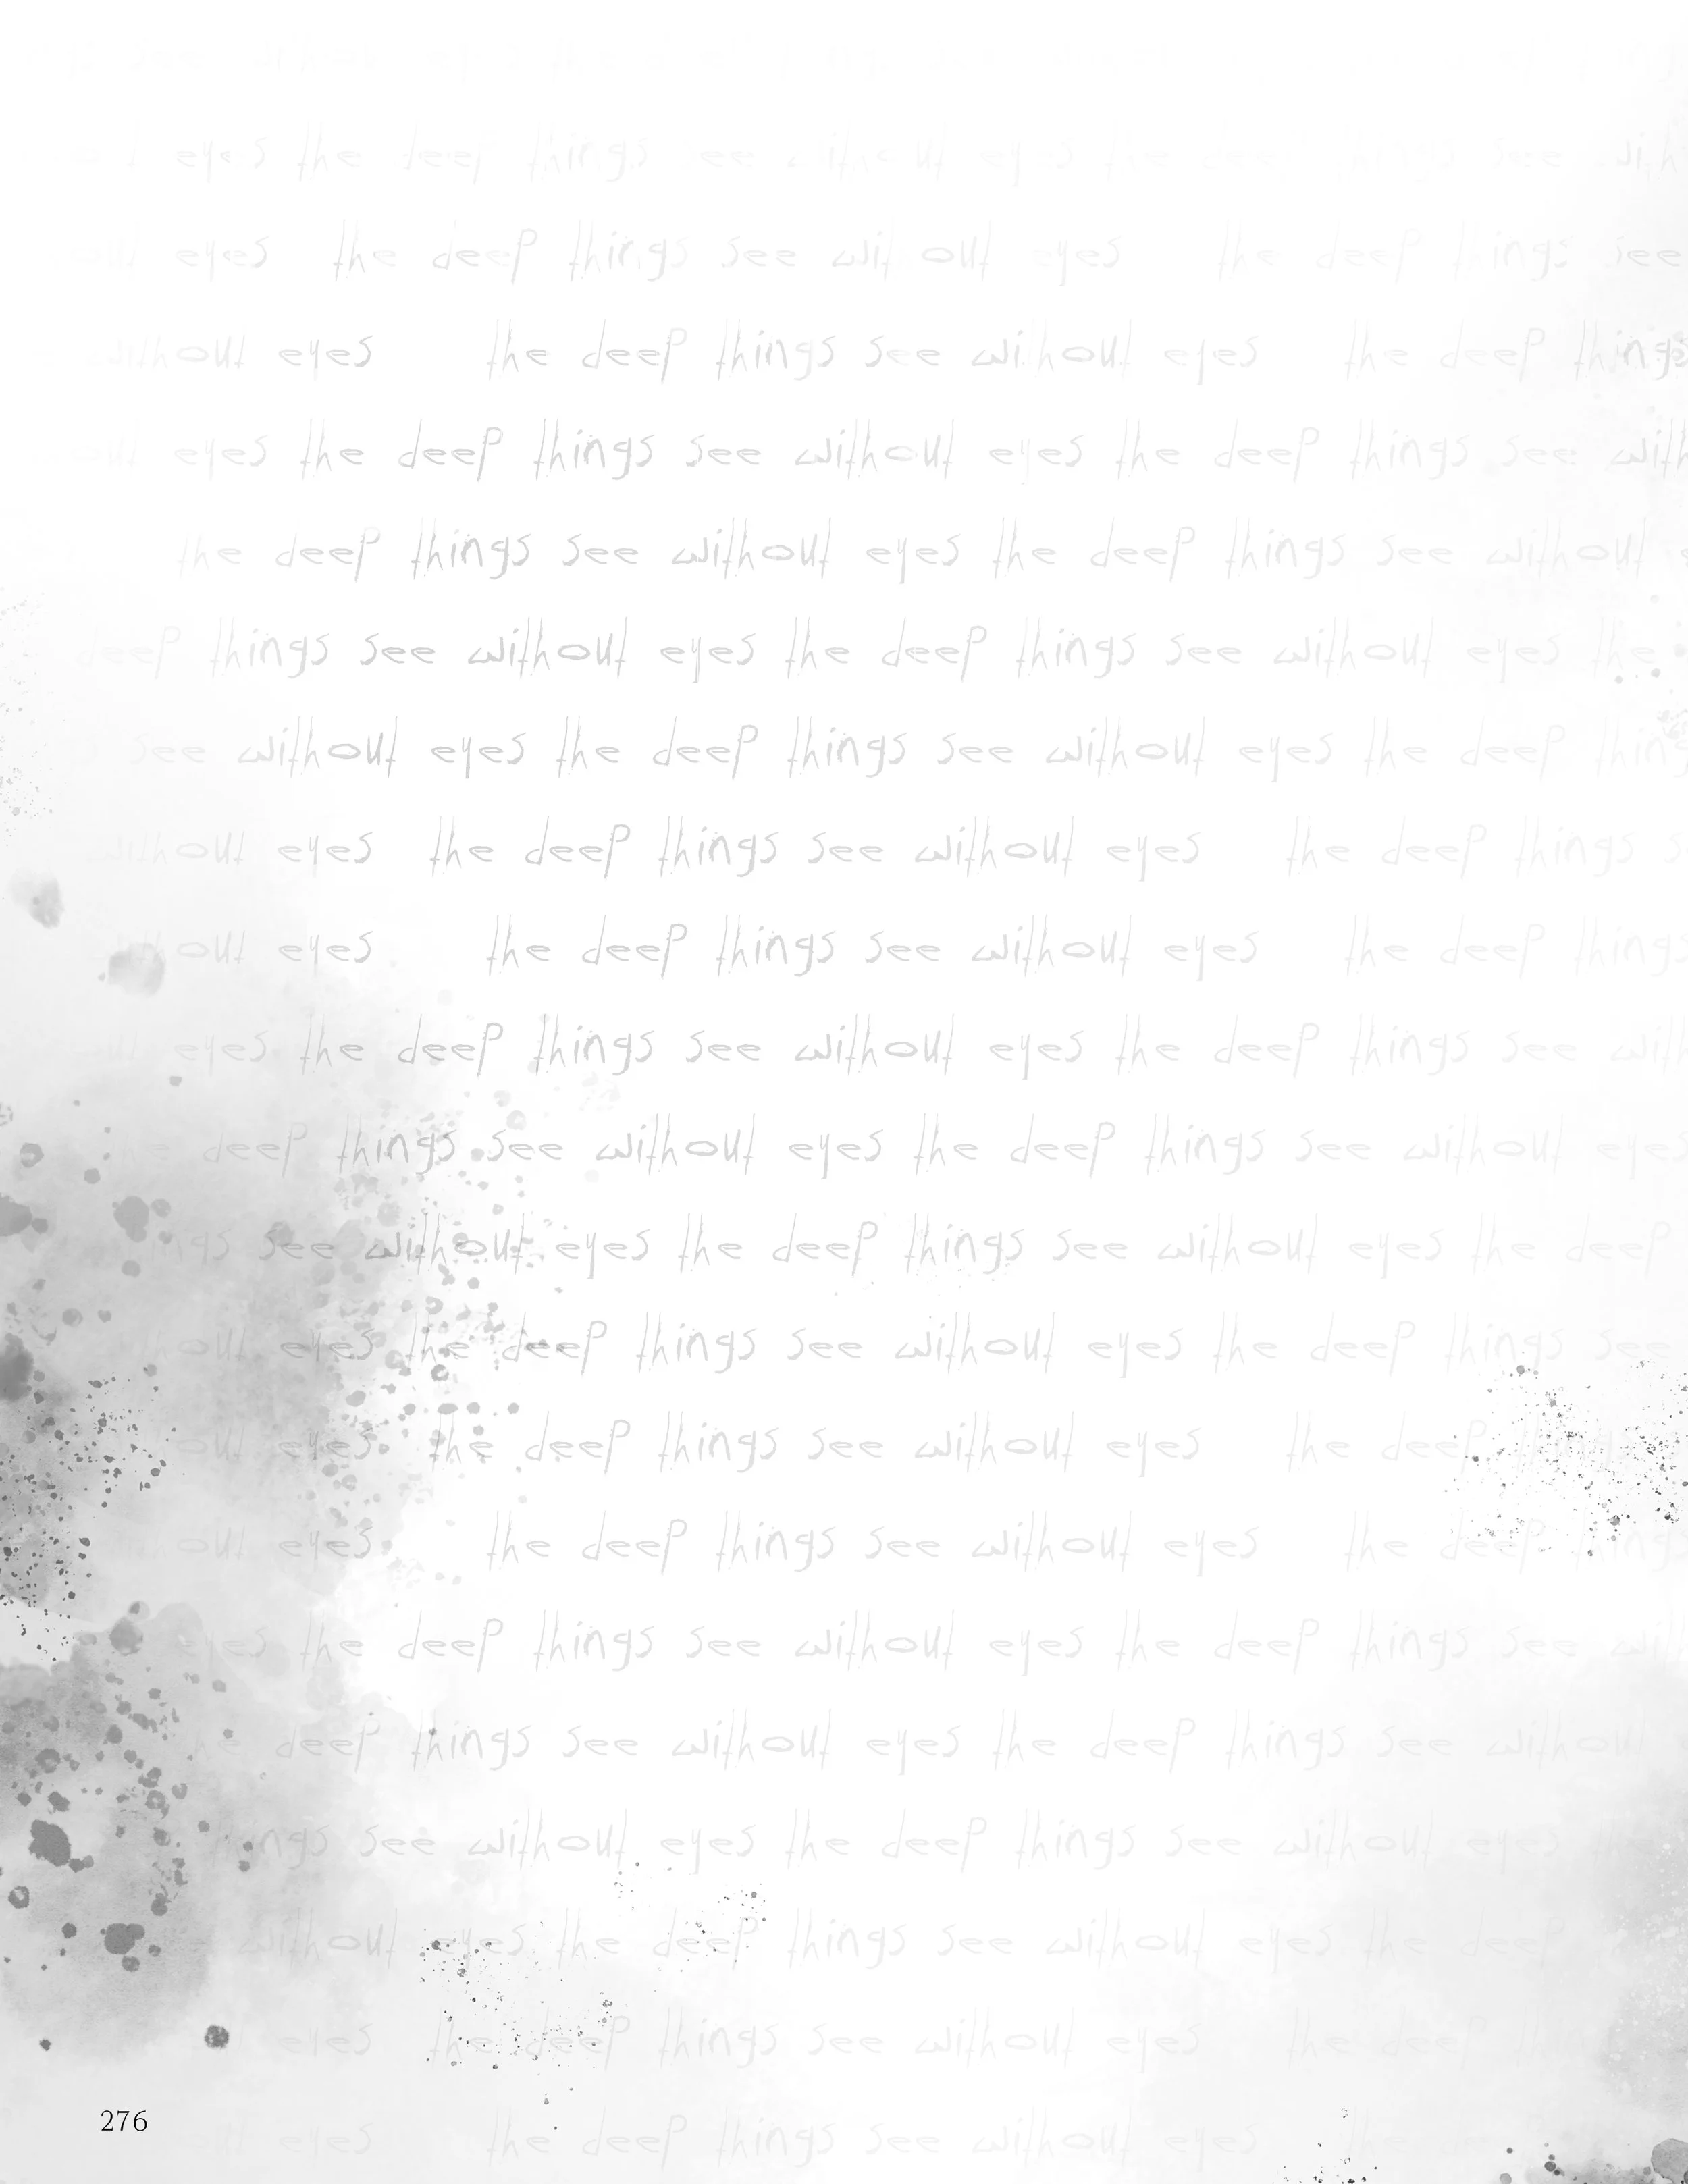 eyes the deep things see without eyes the deep things see with
out eyes the deep things see without eyes the deep things see
without eyes the deep things see without eyes the deep things
out eyes the deep things see without eyes the deep things see with
the deep things see without eyes the deep things see without
deep things see without eyes the deep things see without eyes the
see without eyes the deep things see without eyes the deep thing
without eyes the deep things see without eyes the deep things s
out eyes the deep things see without eyes the deep things
eyes the deep things see without eyes the deep things see with
he deep things see without eyes the deep things see without eyes
ngs see without eyes the deep things see without eyes the deep
hout eyes the deep things see without eyes the deep things see
out eyes the deep things see without eyes the deep things
hout eyes the deep things see without eyes the deep things
eyes the deep things see without eyes the deep things see with
he deep things see without eyes the deep things see without
things see without eyes the deep things see without eyes the
without eyes the deep things see without eyes the deep
eyes the deep things see without eyes the deep
276
eyes the deep things see without eyes the